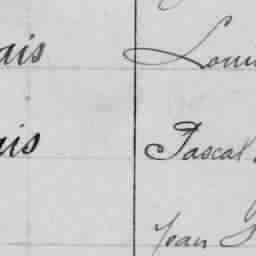 ais Loui
ais Pascal
Jean